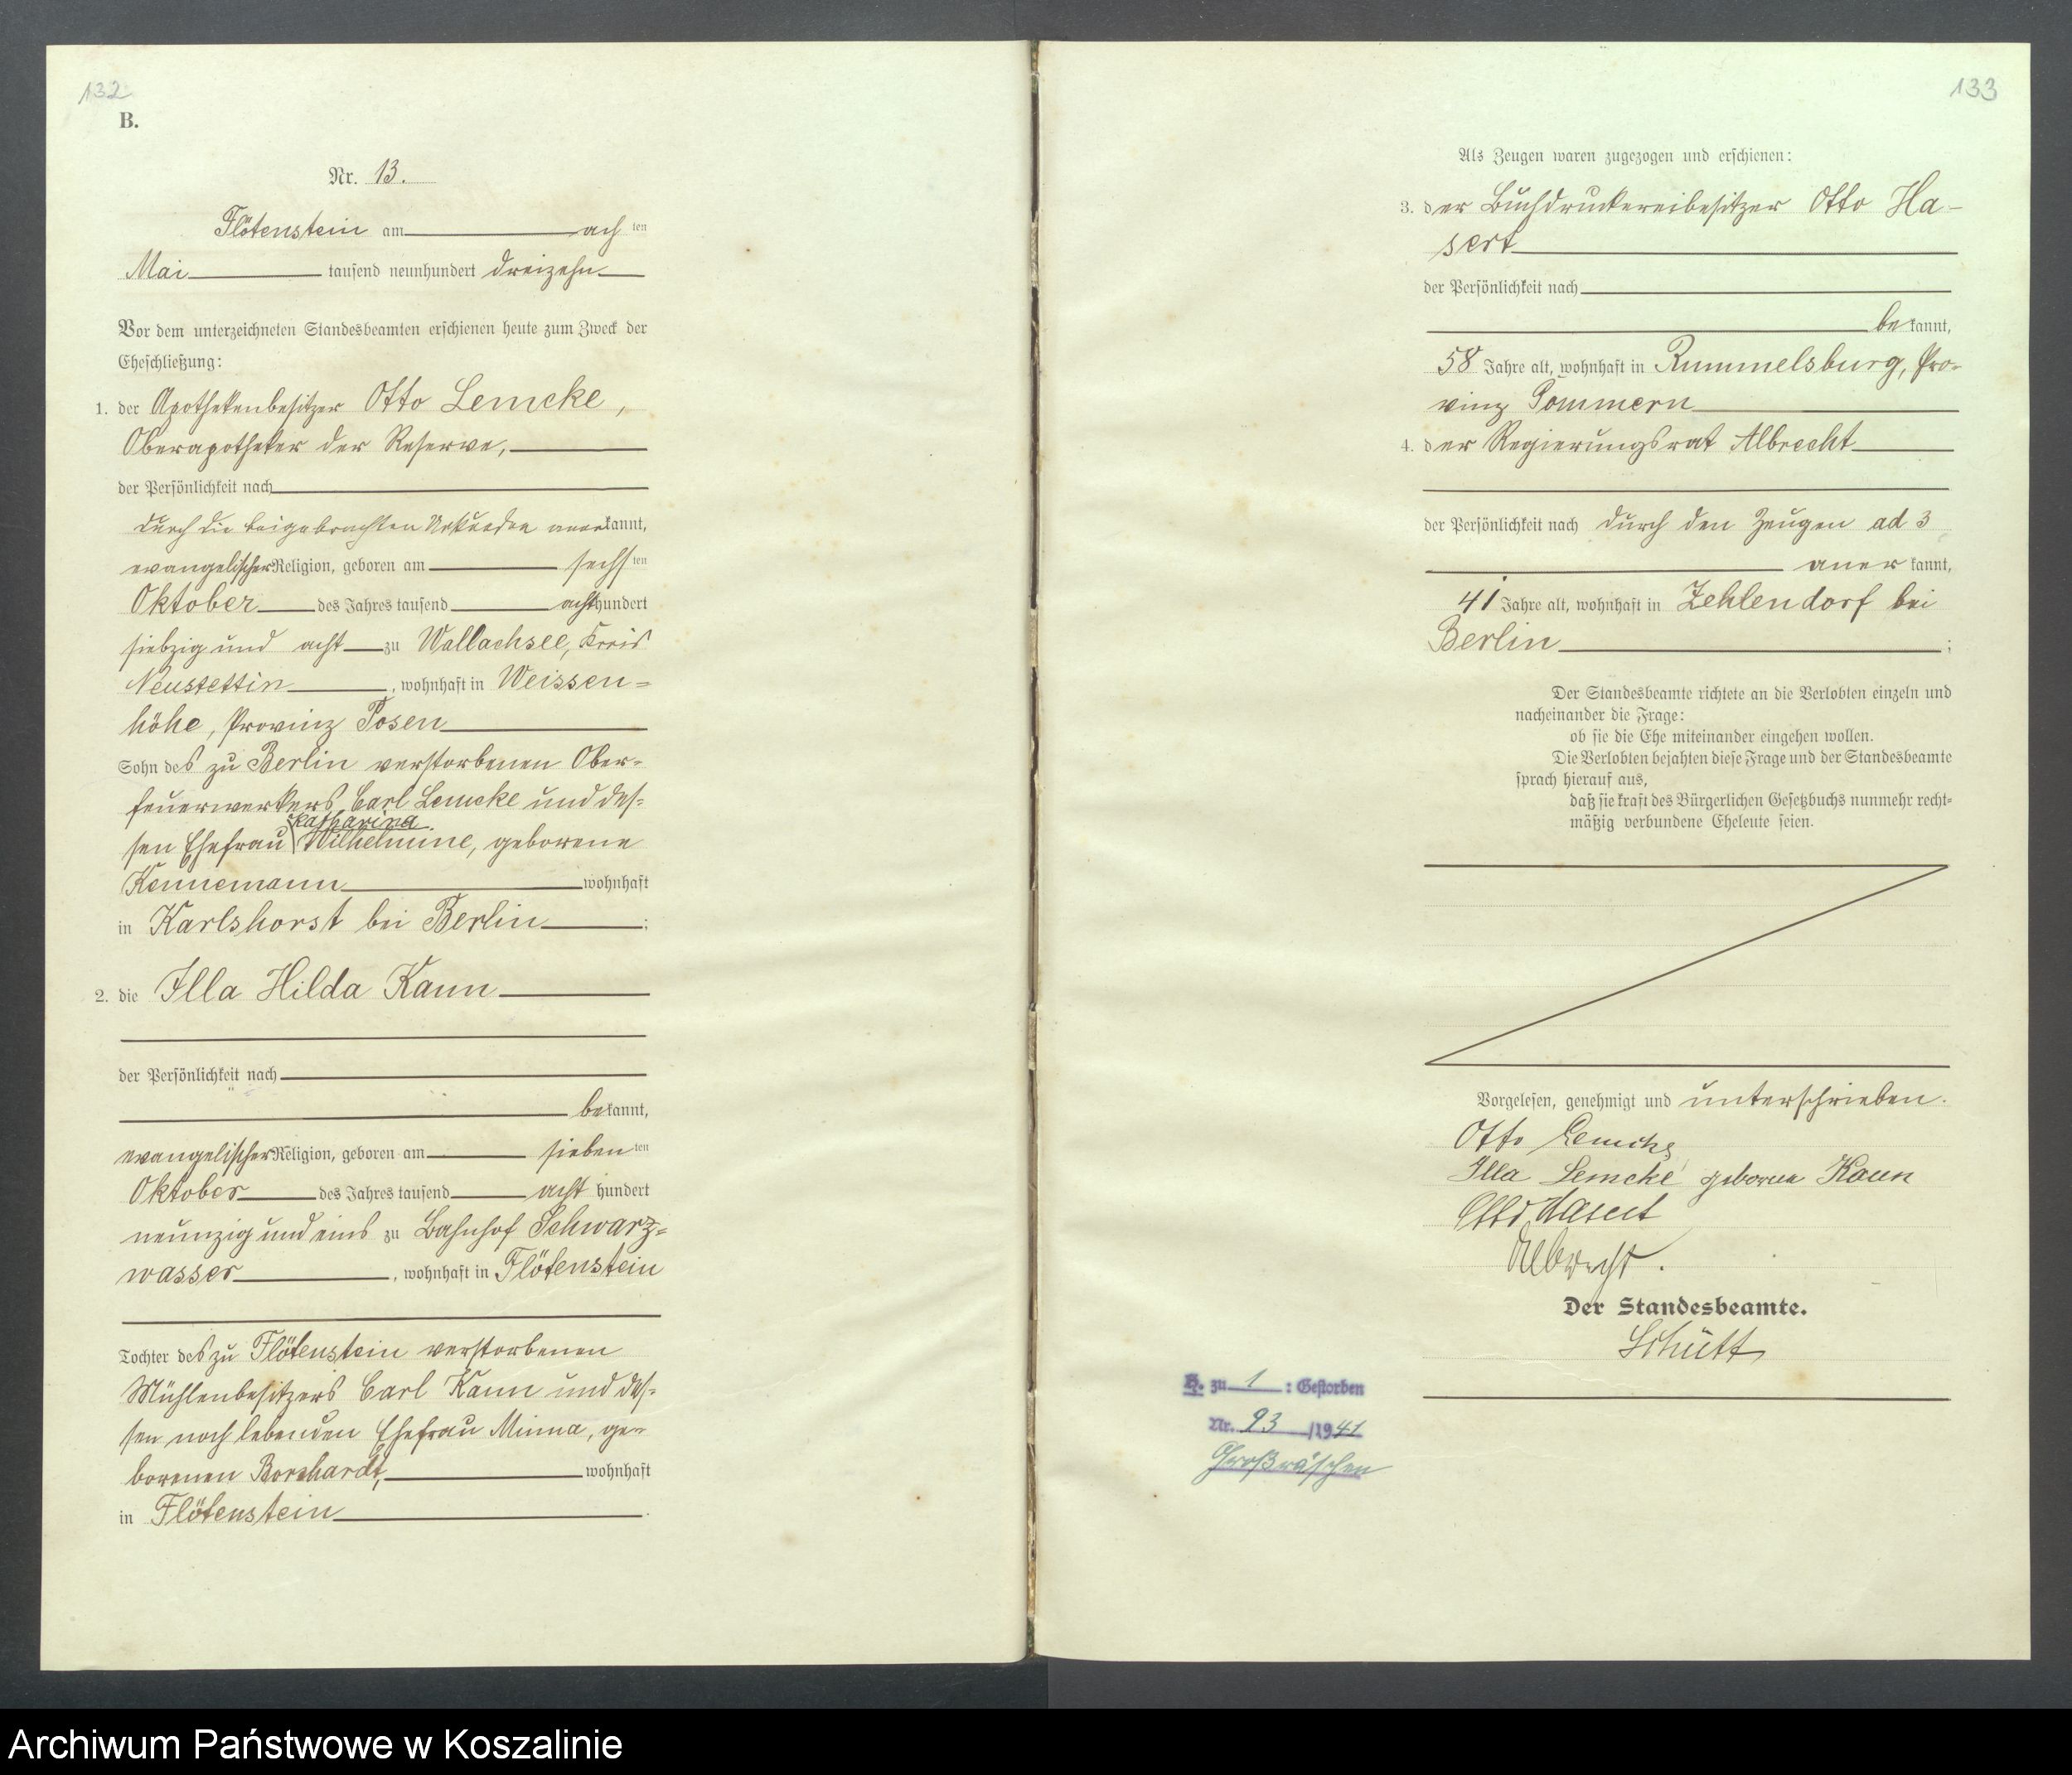 132
B.
Nr. 13.
Flötenstein am ach ten
Mai tausend neunhundert dreizehn
Vor dem unterzeichneten Standesbeamten erschienen heute zum Zweck der
Eheschließung:
1. der Apothekenbesitzer Otto Lemcke,
Oberapotheker der Reserve,
der Persönlichkeit nach
durch die beigebrachten Urkunden anerkannt,
evangelischer Religion, geboren am sechs ten
Oktober des Jahres tausend achthundert
siebzig und acht zu Wallachsee, Kreis
Neustettin, wohnhaft in Weissen=
höhe, Provinz Posen
Sohn des zu Berlin verstorbenen Ober=
feuerwerkers Carl Lemcke und des=
Katharina
sen Ehefrau Wilhelmine, geborene
Kennemann wohnhaft
in Karlshorst bei Berlin ;
2. die Illa Hilda Kann
der Persönlichkeit nach
bekannt,
evangelischer Religion, geboren am sieben ten
Oktober des Jahres tausend acht hundert
neunzig und eins zu Bahnhof Schwarz=
wasser, wohnhaft in Flötenstein
Tochter des zu Flötenstein verstorbenen
Mühlenbesitzers Carl Kann und des=
sen noch lebenden Ehefrau Minna, ge=
borenen Borchardt, wohnhaft
in Flötenstein .
133
Als Zeugen waren zugezogen und erschienen:
3. der Buchdruckereibesitzer Otto Ha-
sert
der Persönlichkeit nach
bekannt,
58 Jahre alt, wohnhaft in Rummelsburg, Pro-
vinz Pommern
4. der Regierungsrat Albrecht
der Persönlichkeit nach durch den Zeugen ad 3
anerkannt,
41 Jahre alt, wohnhaft in Zehlendorf bei
Berlin ;
Der Standesbeamte richtete an die Verlobten einzeln und
nacheinander die Frage:
ob sie die Ehe miteinander eingehen wollen.
Die Verlobten bejahten diese Frage und der Standesbeamte
sprach hierauf aus,
daß sie kraft des Bürgerlichen Gesetzbuchs nunmehr recht=
mäßig verbundene Eheleute seien.
Vorgelesen, genehmigt und unterschrieben.
Otto Lemcke
Illa Lemcke geborene Kann
Otto Hasert
Albrecht.
Der Standesbeamte.
Schütt
B. zu 1 : Gestorben
Nr. 93 /1941
Großräschen
Archiwum Państwowe w Koszalinie